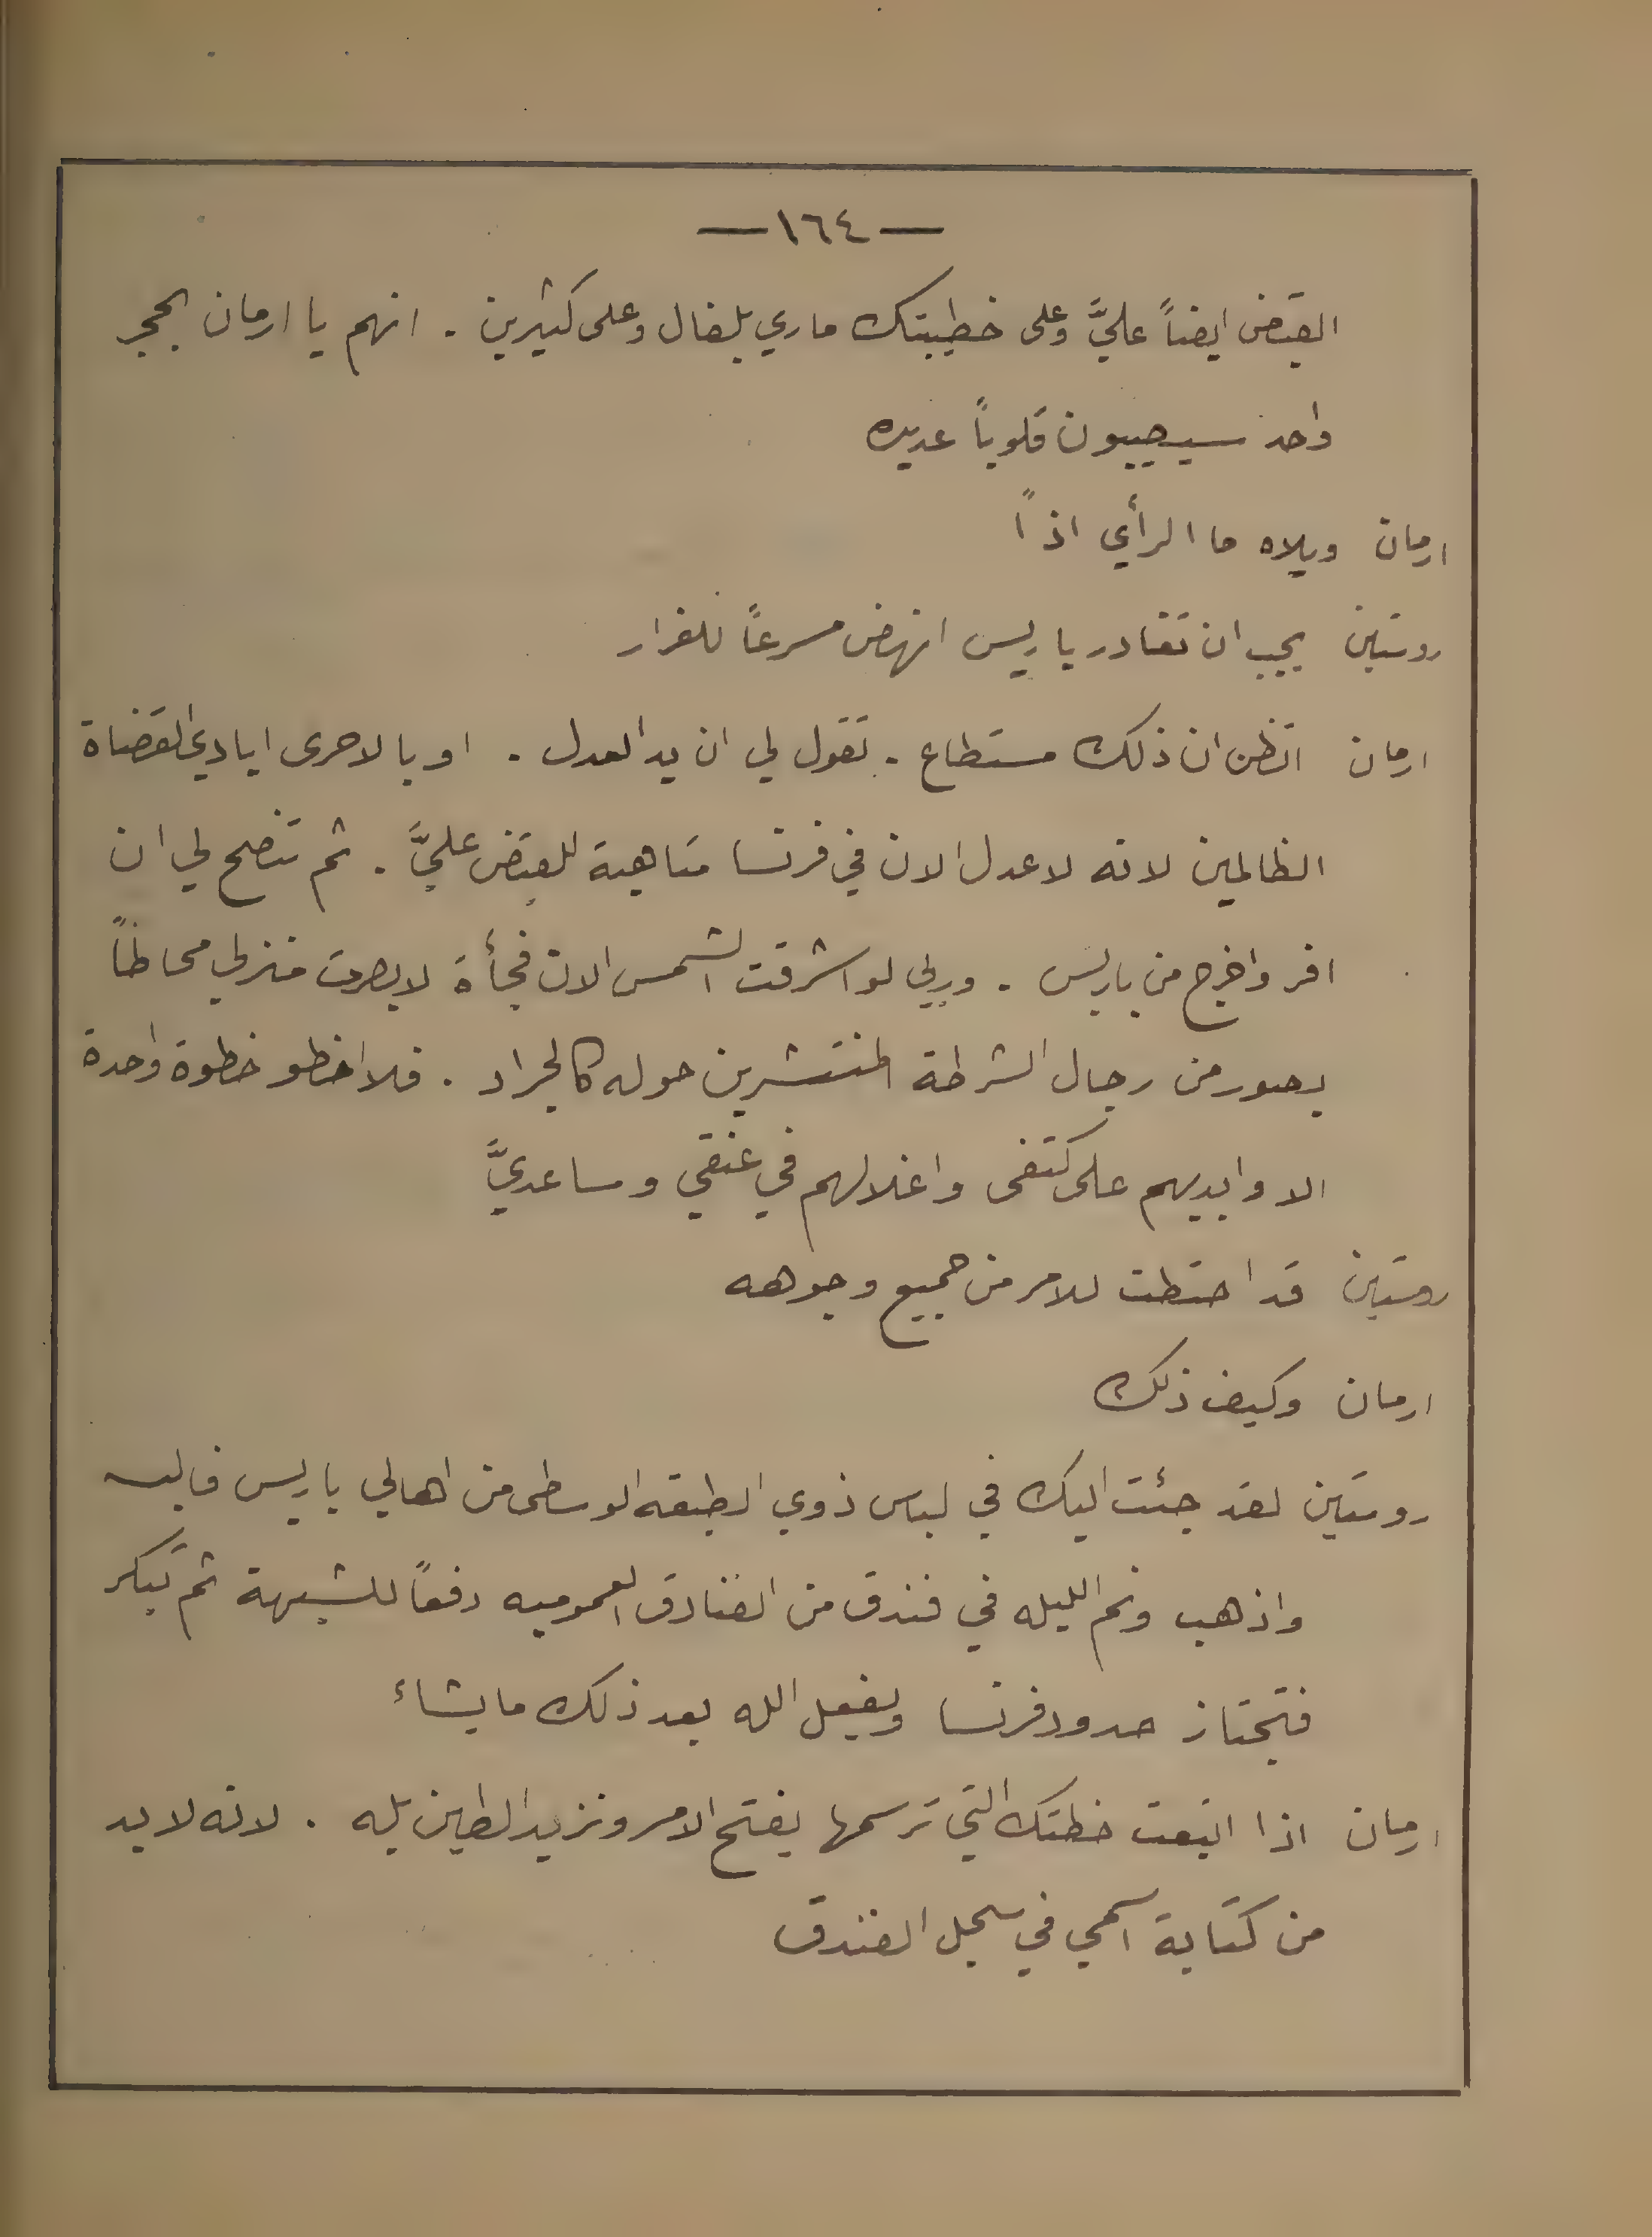 — ١٦٤ —
القبض ايضاً عليَّ وعلى خطيبتك ماري بلفال وعلى كثيرين . انهم يا ارمان بحجر
واحد سيصيبون قلوباً عديده
ارمان ويلاه ما الرأي اذاً
روستين يجب ان تغادر باريس انهض مسرعاً للفرار
ارمان اتظن ان ذلك مستطاع . تقول لي ان يد العدل . او بالاحرى ايادي القضاة
الظالمين لانه لا عدل الان في فرنسا متاهبة للقبض عليَّ . ثم تنصح لي ان
افر واخرج من باريس . وربي لو اشرقت الشمس الان فجأة لابصرت منزلي محاطاً
بصور من رجال الشرطة المنتشرين حوله كالجراد . فلا اخطو خطوة واحدة
الا وايديهم على كتفى واغلالهم في عنقي وساعديَّ
روستين قد احتطت للامر من جميع وجوهه
ارمان وكيف ذلك
روستين لقد جئت اليك في لباس ذوي الطبقه الوسطى من اهالي باريس فالبسه
واذهب ونم الليله في فندق من الفنادق العموميه دفعاً للشبهة ثم تبكر
فتجتاز حدود فرنسا ويفعل الله بعد ذلك ما يشاء
ارمان اذا اتبعت خطتك التي ترسمها يفتح الامر ونزيد الطين بله . لانه لا بد
من كتابة اسمي في سجل الفندق